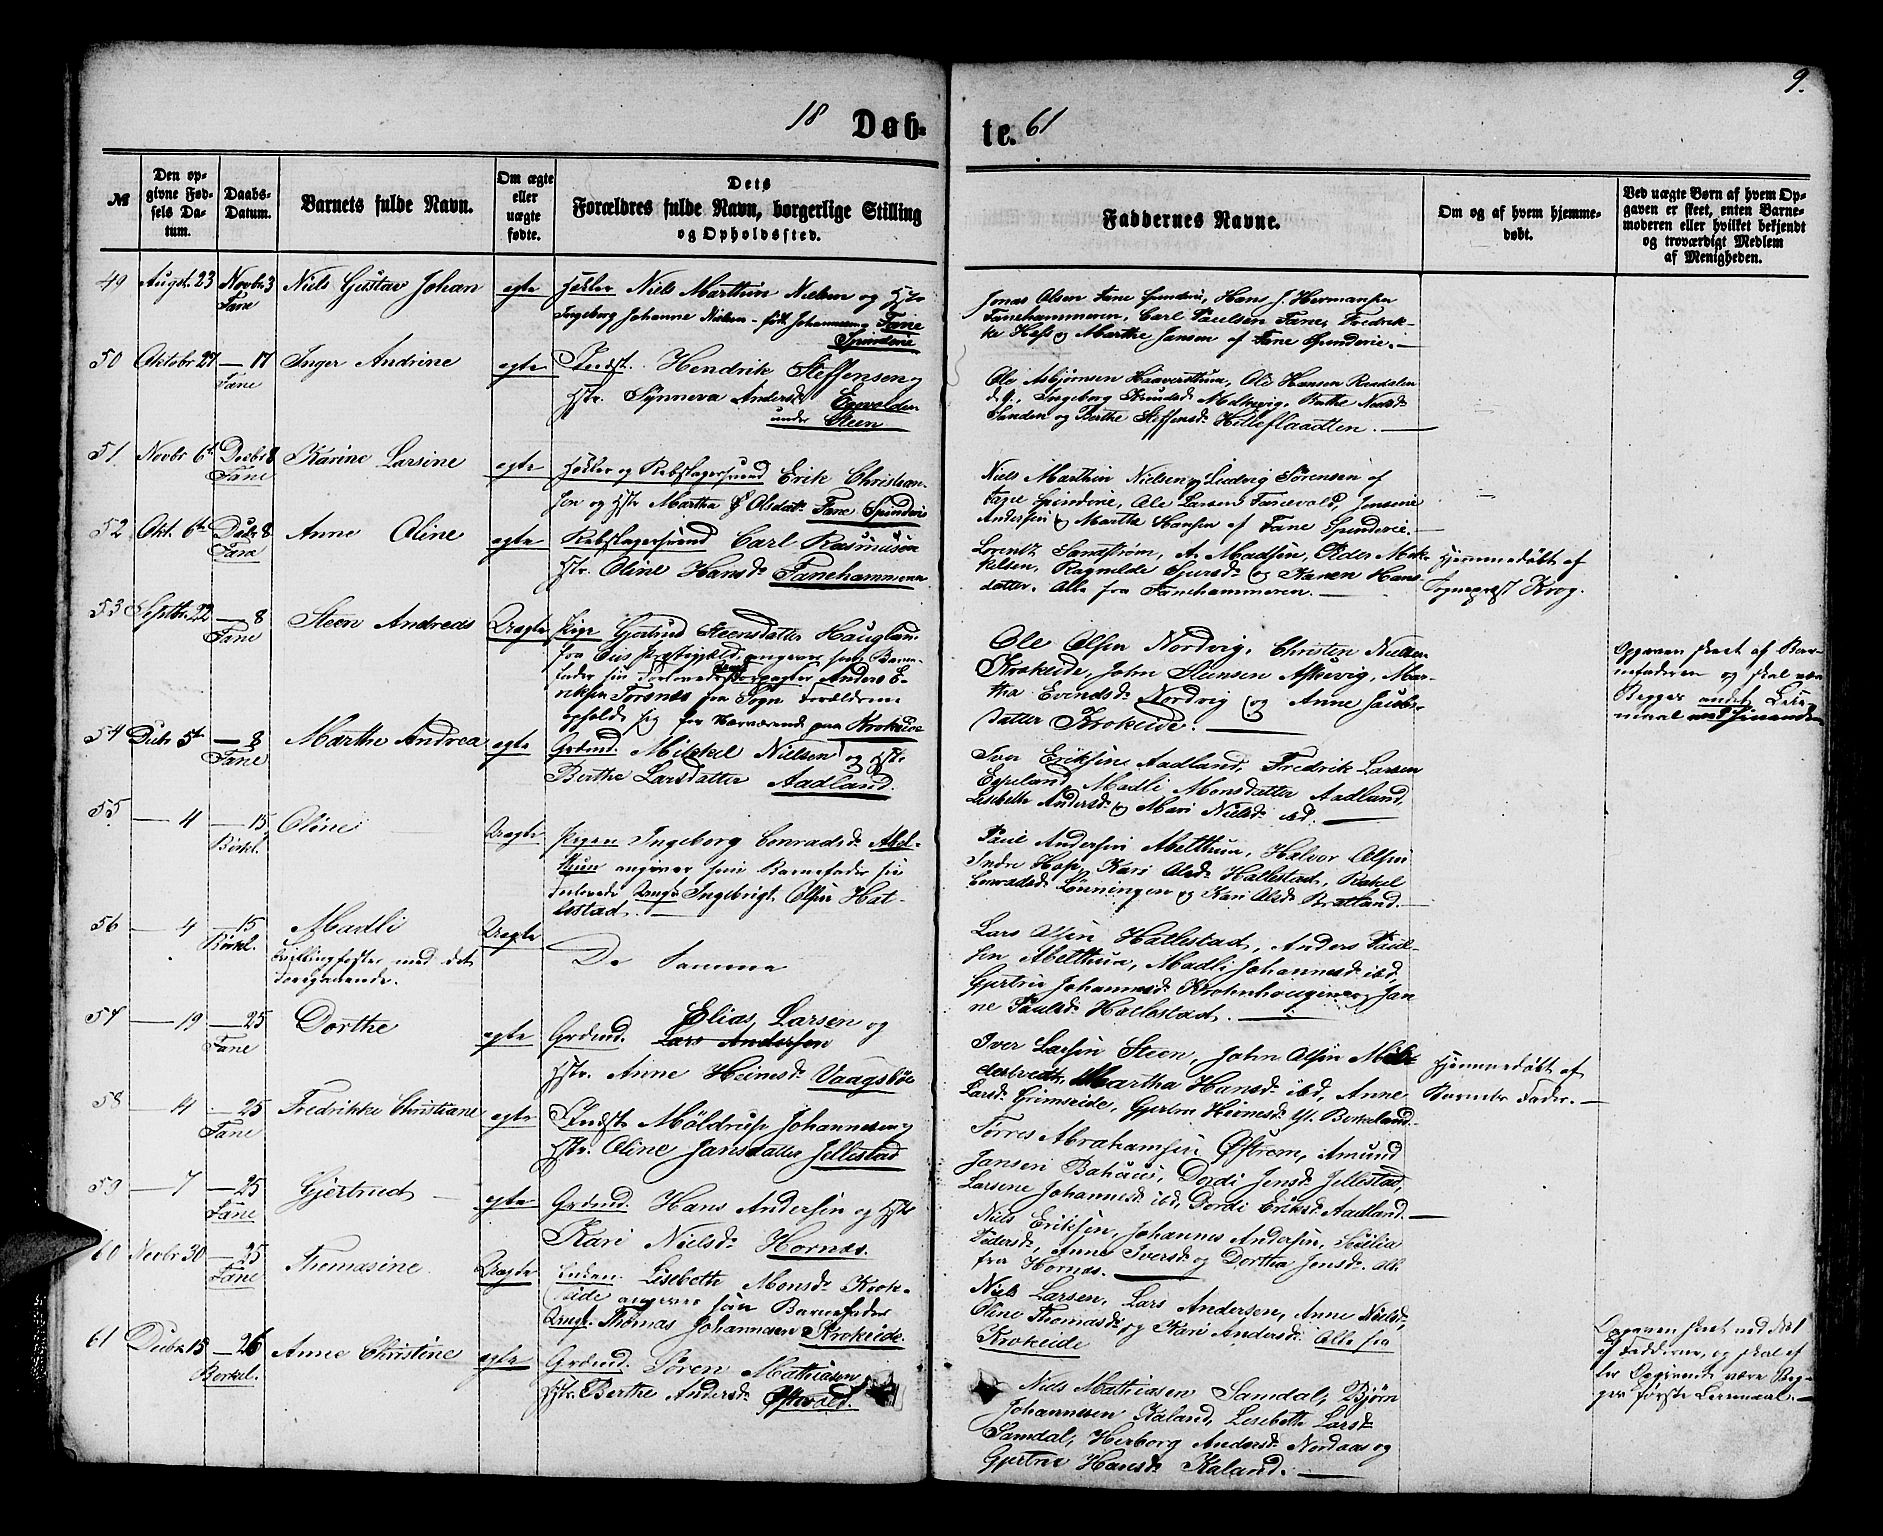 9.
18 Døb- te. 61
№
Den op-
givne Fød-
sels Da-
tum.
Daabs-
Datum.
Barnets fulde Navn.
Om ægte
eller
uægte
fødte.
Dets
Forældres fulde Navn, borgerlige Stilling
og Opholdssted.
Faddernes Navne.
Om og af hvem hjemme-
døbt.
Ved uægte Børn af hvem Op-
gaven er skeet, enten Barne-
moderen eller hvilket bekjendt
og troværdigt Medlem
af Menigheden.
49 Augst. 23 Novbr 3 Fane
Niels Gustav Johan
egte
Niels Marthin Nielsen og Hstr
Ingeborg Johanne Nielsen - født Johannesen Fane
Spinderie
Jonas Olsen Fane Spinderi, Hans J. Hermansen
Fanehammeren, Carl Paulsen Fane, Fredrik-
ke Hess og Marthe Jansen af Fane Spinderie. —
50 Oktober 27 — 17 Fane
Inger Andrine
egte
Indst. Hendrik Steffensen og
Hstr. Synneva Andersd.
under Steen
Ole Asbjørnsen Haaversthun, Ole Hansen Raadalen
d.y., Ingeborg Knudsd. Melhevig, Brithe Nersd.
Sanden og Berthe Steffensd. Hilleflaadten. —
51. Novbr 6te Decbr 8 Fane
Karine Larsine
egte
og Rebslagersvend Erik Christian-
sen og Hstr Martha Olsdat. Fane Spinderie
Niels Marthin Nielsen og Ludvig Sørensen af
Fane Spinderie, Ole Larsen Fanevald, Jensine
Andersen og Marthe Hansen af Fane Spinderie. —
52 Okt. 6te Decbr 8 Fane
Anne Oline
egte
Rebslagersvend Carl Rasmusen
Hstr. Oline Hansd. Fanehammeren
Lorentz Sandstrøm, A. Madsen, Peder Mik-
kelsen, Ragnilde Sjursd. og Karen Hans-
datter. Alle fra Fanehammeren. —
Hjemmedøbt af
Sogneprest Krog.
53 Septbr. 22 — 8 Fane
Steen Andreas
Uægte
Pige Gjertrud Steensdatter Haugland
fra Præstegjeld, angiver som Barne-
fader sin Forlovede Anders E-
riksen Trones fra Sogn Forældrene
opholde sig for Nærværende paa Krokeide
Ole Olsen Nordvig, Christen Nielsen
Krokeide, John Steensen Askevig, Mar-
tha Evendsd. Nordvig og Anne Jacobs-
datter Krokeide. —
Opgaven skeet af Bar-
nefaderen og skal være
Begges andet Leier-
maal med hinanden
54 Decbr 5te — 8 Fane
Marthe Andrea
egte
Grdmd. Mikkel Nielsen og Hstr.
Berthe Larsdatter Aadland.
Iver Eriksen Aadland, Fredrik Larsen
Espeland, Madli Monsdatter Aadland,
Lisebeth Andersd. og Mari Nielsd. ibd. —
55 — 4 — 15 Birkel.
Oline
Uægte
Pigen Ingeborg Conradsd. Abel-
thun angiver som Barnefader sin
Forlovede Ungk. Ingebrigt Olsen Hal-
lestad. —
Paul Andersen Abelthun, Halvor Olsen
Indre Hop, Kari Olsd. Hallestad, Rakel
Conradsd. Lønningen og Kari Olsd. Bratland. —
56 — 4 — 15 Birkel.
Madli
Tvillingsøster med det
Foregaaende.
Uægte
De Samme
Lars Olsen Hallestad, Anders Paul-
sen Abelthun, Madli Johannesd. ibd,
Gjertrue Johannesd. Krohnhougine og Jan-
ne Paulsd. Hallestad. —
57 — 19 — 25 Fane
Dorthe
egte
Grdmd. Elias Larsen og
Lars Andersen
Hstr. Anne Heinesd. Vaagsbøe
Iver Larsen Steen, John Olsen Mil-
destvedt, Martha Hansd. ibd, Anne
Larsd. Grimseide, Gjertrue Heinesd. Yt. Birkeland.
Hjemmedøbt af
Barnets Fader. —
58 — 14 — 25 Fane
Fredrikke Christiane
egte
Indst. Möldrup Johannesen og
Hstr. Oline Jansdatter Jellestad
Torres Abrahamsen Østrem, Amund
Jansen Bahaus, Dordi Jensd. Jellestad,
Larsene Johannesd. ibd, Dordi Eriksd. Aadland. —
59 — 7 — 25 Fane
Gjertrud
egte
Grdmd. Hans Andersen og Hstr
Kari Nielsd. Hornæs.
Niels Eriksen, Johannes Andersen,
Pedersd., Anna Iversd. og Dortha Jensd. alle
fra Hornæs. —
60 Novbr 30 — 25 Fane
Thomasine.
Uægte
Enken Lisebeth Monsd. Krok-
eide angiver som Barnefader
Ungk. Thomas Johannesen Krokeide.
Niels Larsen, Lars Andersen, Anne Nielsd.,
Oline Thomasd. og Kari Andersd. Alle fra
Krokeide
Opgaven skeet ved
af Fadderne, og skal ef-
ter Opgivende være Beg-
ges første Leiermaal. —
61 Decbr 15 — 26 Birkel.
Anne Christine
egte
Grdmd. Søren Mathiasen
Hstr. Berthe Andersd. Øftevold.
Niels Mathiasen Samdal, Bjørn
Johannesen Kaland, Lisebeth Larsd.
Samdal, Herborg Andersd. Nordaas og
Gjertrue Hansd. Kaland. —